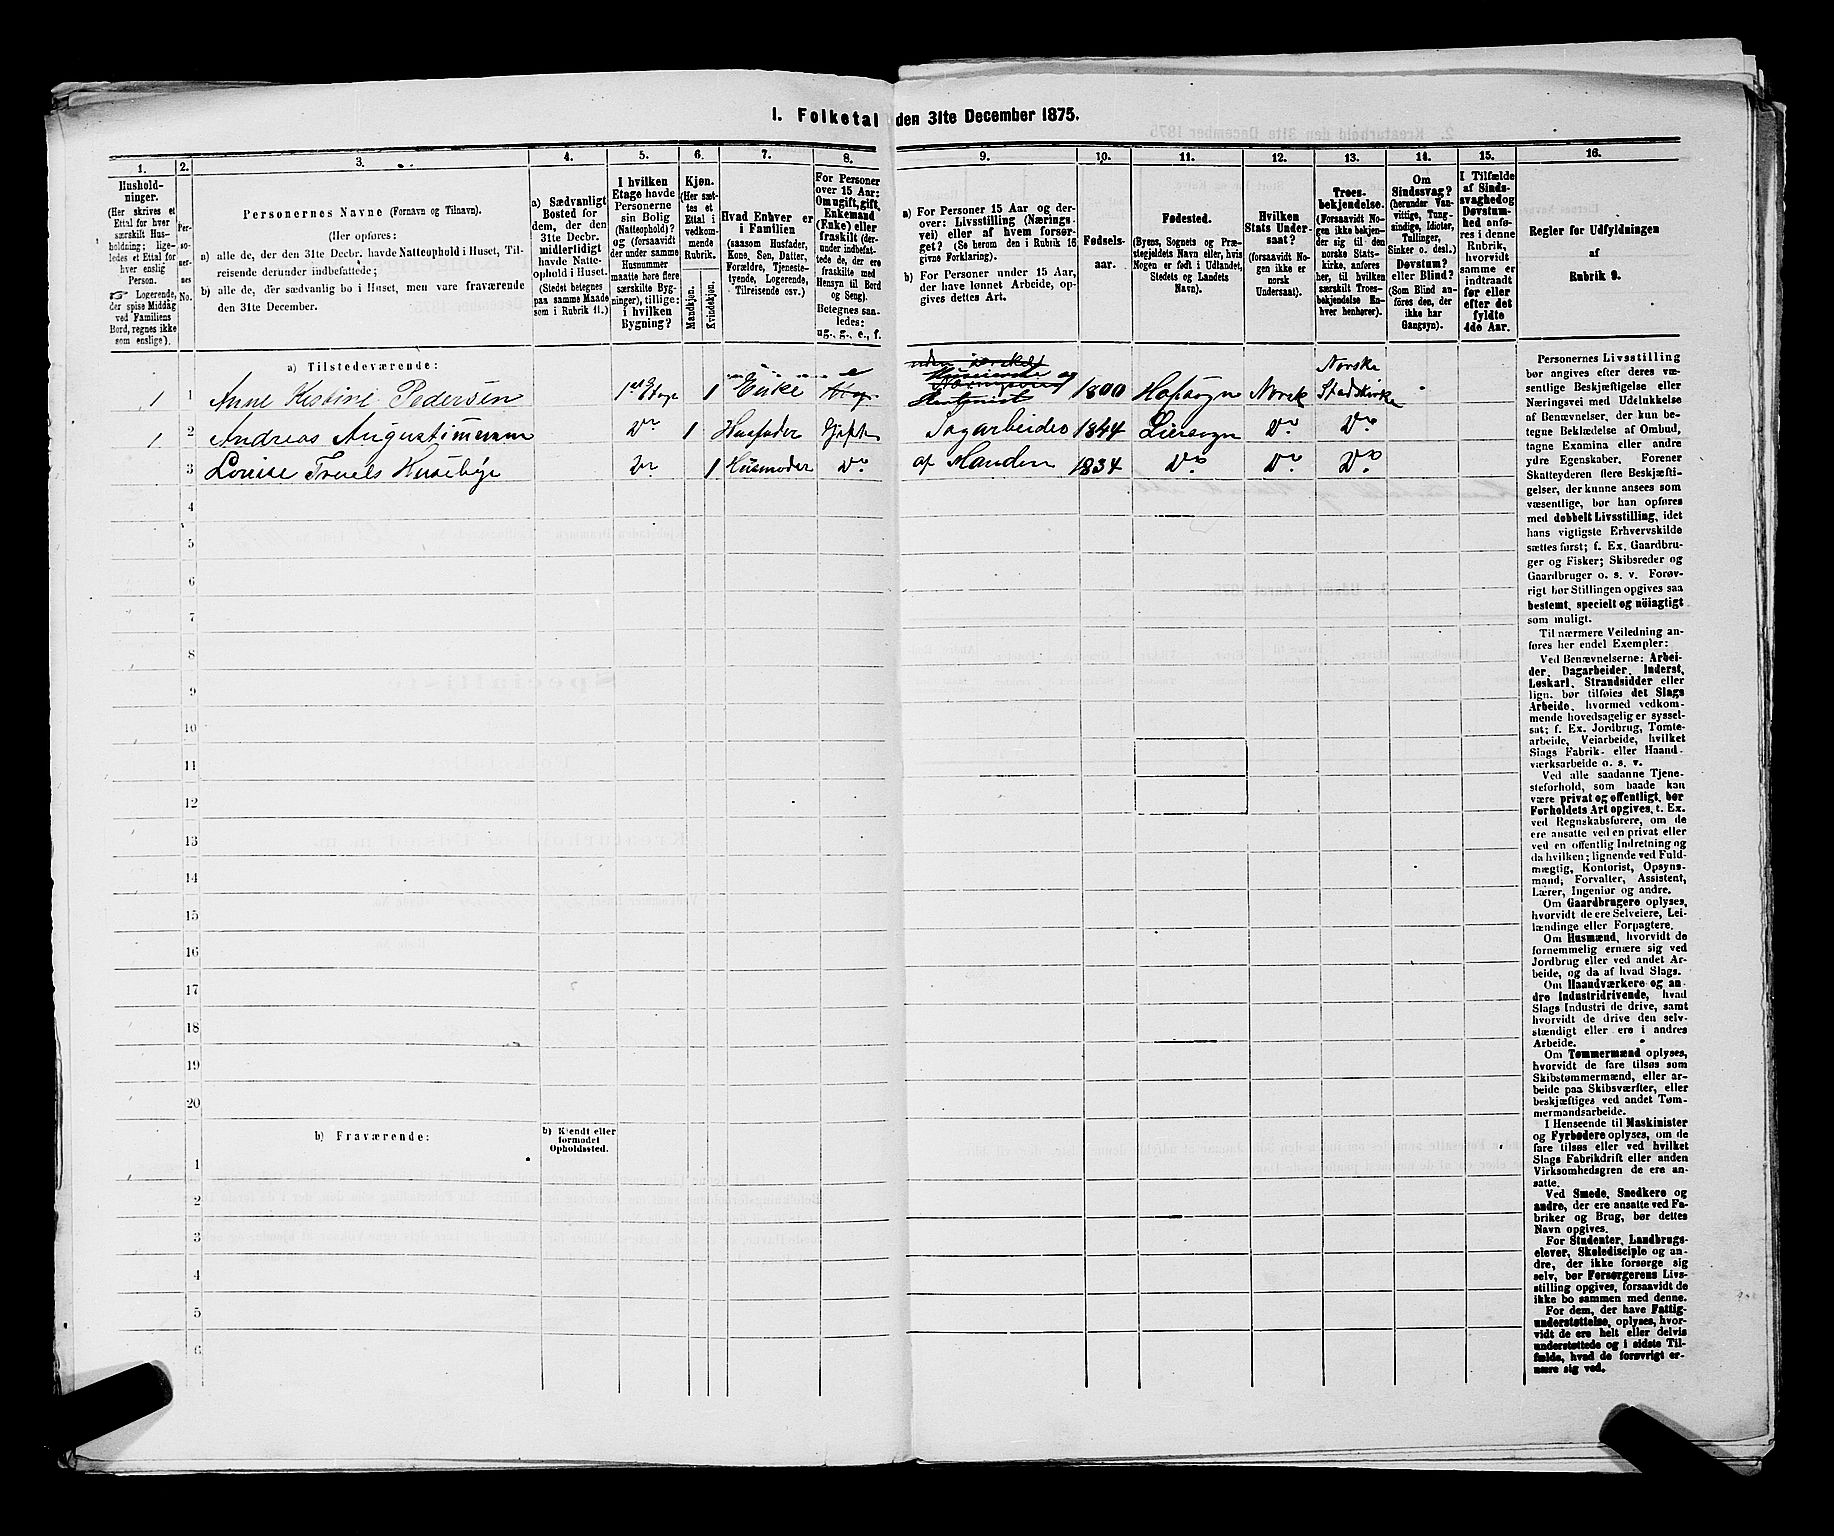 I. Folketal den 31te December 1875.
1.
Hushold-
ninger.
(Her skrives et
Ettal for hver
særskilt Hus-
holdning; lige-
ledes et Ettal for
hver enslig
Person.
Logerende,
der spise Middag
ved Familiens
Bord, regnes ikke
som enslige).
2.
Per-
so-
ner-
nes
No.
3.
Personernes Navne (Fornavn og Tilnavn).
(Her opføres:
a) alle de, der den 31te Decbr. havde Natteophold i Huset, Til-
reisende derunder indbefattede;
b) alle de, der sædvanlig bo i Huset, men vare fraværende
den 31te December.
4.
a) Sædvanligt
Bosted for
dem, der den
31te Decbr.
midlertidigt
havde Natte-
ophold i Huset.
(Stedet betegnes
paa samme Maade
som i Rubrik 11.)
5.
I hvilken
Etage havde
Personerne
sin Bolig
(Natteophold)?
og (forsaavidt
der under samme
Husnummer
maatte høre flere
særskilte Byg-
ninger), tillige:
i hvilken
Bygning?
6.
Kjøn.
(Her sæt-
tes et
Ettal i
vedkom-
mende
Rubrik.
Mandkjøn.
Kvindekjøn.
7.
Hvad Enhver er
i Familien
(saasom Husfader,
Kone, Søn, Datter,
Forældre, Tjeneste-
tyende, Logerende,
Tilreisende osv.)
8.
For Personer
over 15 Aar:
Om ugift, gift,
Enkemand
(Enke) eller
fraskilt (der-
under indbefat-
tede de, der ere
fraskilte med
Hensyn til Bord
og Seng).
Betegnes saa-
ledes:
ug., g., e., f.
9.
a) For Personer 15 Aar og der-
over: Livsstilling (Nærings-
vei) eller af hvem forsør-
get? (Se herom den i Rubrik 16
givne Forklaring).
b) For Personer under 15 Aar,
der have lønnet Arbeide, op-
gives dettes Art.
10.
Fødsels-
aar.
11.
Fødested.
(Byens, Sognets og Præ-
stegjeldets Navn eller, hvis
Nogen er født i Udlandet,
Stedets og Landets
Navn).
12.
Hvilken
Stats Under-
saat?
(forsaavidt No-
gen ikke er
norsk
Undersaat).
13.
Troes-
bekjendelse.
(Forsaavidt No-
gen ikke bekjen-
der sig til den
norske Stats-
kirke, anføres
her, til hvilken
særskilt Troes-
bekjendelse En-
hver henhører).
14.
Om
Sindssvag?
(herunder Van-
vittige, Tung-
sindige, Idioter,
Tullinger,
Sinker o. desl.)
Døvstum?
eller Blind?
(Som Blind an-
føres den, der
ikke har
Gangsyn).
15.
I Tilfælde
af Sinds-
svaghed og
Døvstum-
hed anfø-
res i denne
Rubrik,
hvorvidt
samme er
indtraadt
før eller
efter det
fyldte
4de Aar.
16.
Regler for Udfyldningen
af
Rubrik 9.
a) Tilstedeværende:
1 1 Anne Kistine Pedersen 1st Etage 1 Enke e 1800 Hofsogn Norsk Norske Stadskirke
1 2 Andreas Do 1 Husfader Gift Sagarbeider 1844 Liersogn Do Do
3 Louise Truels Husebye Do 1 Husmoder Do af Manden 1834 Do Do Do
4
5
6
7
8
9
10
11
12
13
14
15
16
17
18
19
20
b) Fraværende:
b) Kjendt eller
formodet
Opholdssted.
1
2
3
4
5
6
Personernes Livsstilling
bør angives efter deres væ-
sentlige Beskjæftigelse eller
Næringsvei med Udelukkelse
af Benævnelser, der kun be-
tegne Beklædelse af Ombud,
tagne Examina eller andre
ydre Egenskaber. Forener
Skatteyderen flere Beskjæfti-
gelser, der kunne ansees som
væsentlige, bør han opføres
med dobbelt Livsstilling, idet
hans vigtigste Erhvervskilde
sættes først; f. Ex. Gaardbru-
ger og Fisker; Skibsreder og
Gaardbruger o. s. v. Forøv-
rigt bør Stillingen opgives saa
bestemt, specielt og nöiagtigt
som muligt.
Til nærmere Veiledning an-
føres her endel Exempler:
Ved Benævnelserne: Arbei-
der, Dagarbeider, Inderst,
Løskarl, Strandsidder eller
lign. bør tilføies det Slags
Arbeide, hvormed vedkom-
mende hovedsagelig er syssel-
sat; f. Ex. Jordbrug, Tomte-
arbeide, Veiarbeide, hvilket
Slags Fabrik- eller Haand-
værksarbeide o. s. v.
Ved alle saadanne Tjene-
steforhold, som baade kan
være privat og offentligt, bør
Forholdets Art opgives, t. Ex.
ved Regnskabsførere, om de
ere ansatte ved en privat eller
ved en offentlig Indretning og
da hvilken; lignende ved Fuld-
mægtig, Kontorist, Opsyns-
mand, Forvalter, Assistent,
Lærer, Ingeniør og andre.
Om Gaardbrugere oplyses,
hvorvidt de ere Selveiere, Lei-
lændinge eller Forpagtere.
Om Husmænd, hvorvidt de
fornemmelig ernære sig ved
Jordbrug eller ved andet Ar-
beide, og da af hvad Slags.
Om Haandværkere og an-
dre Industridrivende, hvad
Slags Industri de drive, samt
hvorvidt de drive den selv-
stændigt eller ere i andres
Arbeide.
Om Tømmermænd oplyses,
hvorvidt de fare tilsøs som
Skibstømmermænd, eller ar-
beide paa Skibsværfter, eller
beskjæftiges ved andet Tøm-
mermandsarbeide.
I Henseende til Maskinister
og Fyrbødere oplyses, om de
fare tilsøs eller ved hvilket
Slags Fabrikdrift eller anden
Virksomhedsgren de ere an-
satte.
Ved Smede, Snedkere og
andre, der ere ansatte ved Fa-
briker og Brug, bør dettes
Navn opgives.
For Studenter, Landbrugs-
elever, Skoledisciple og an-
dre, der ikke forsørge sig
selv, bør Forsørgerens Livs-
stilling opgives, forsaavidt de
ikke bo sammen med denne.
For dem, der have Fattig-
understøttelse, oplyses, hvor-
vidt de ere helt eller delvis
understøttede og i sidste Til-
fælde, hvad de forøvrigt er-
nære sig ved.